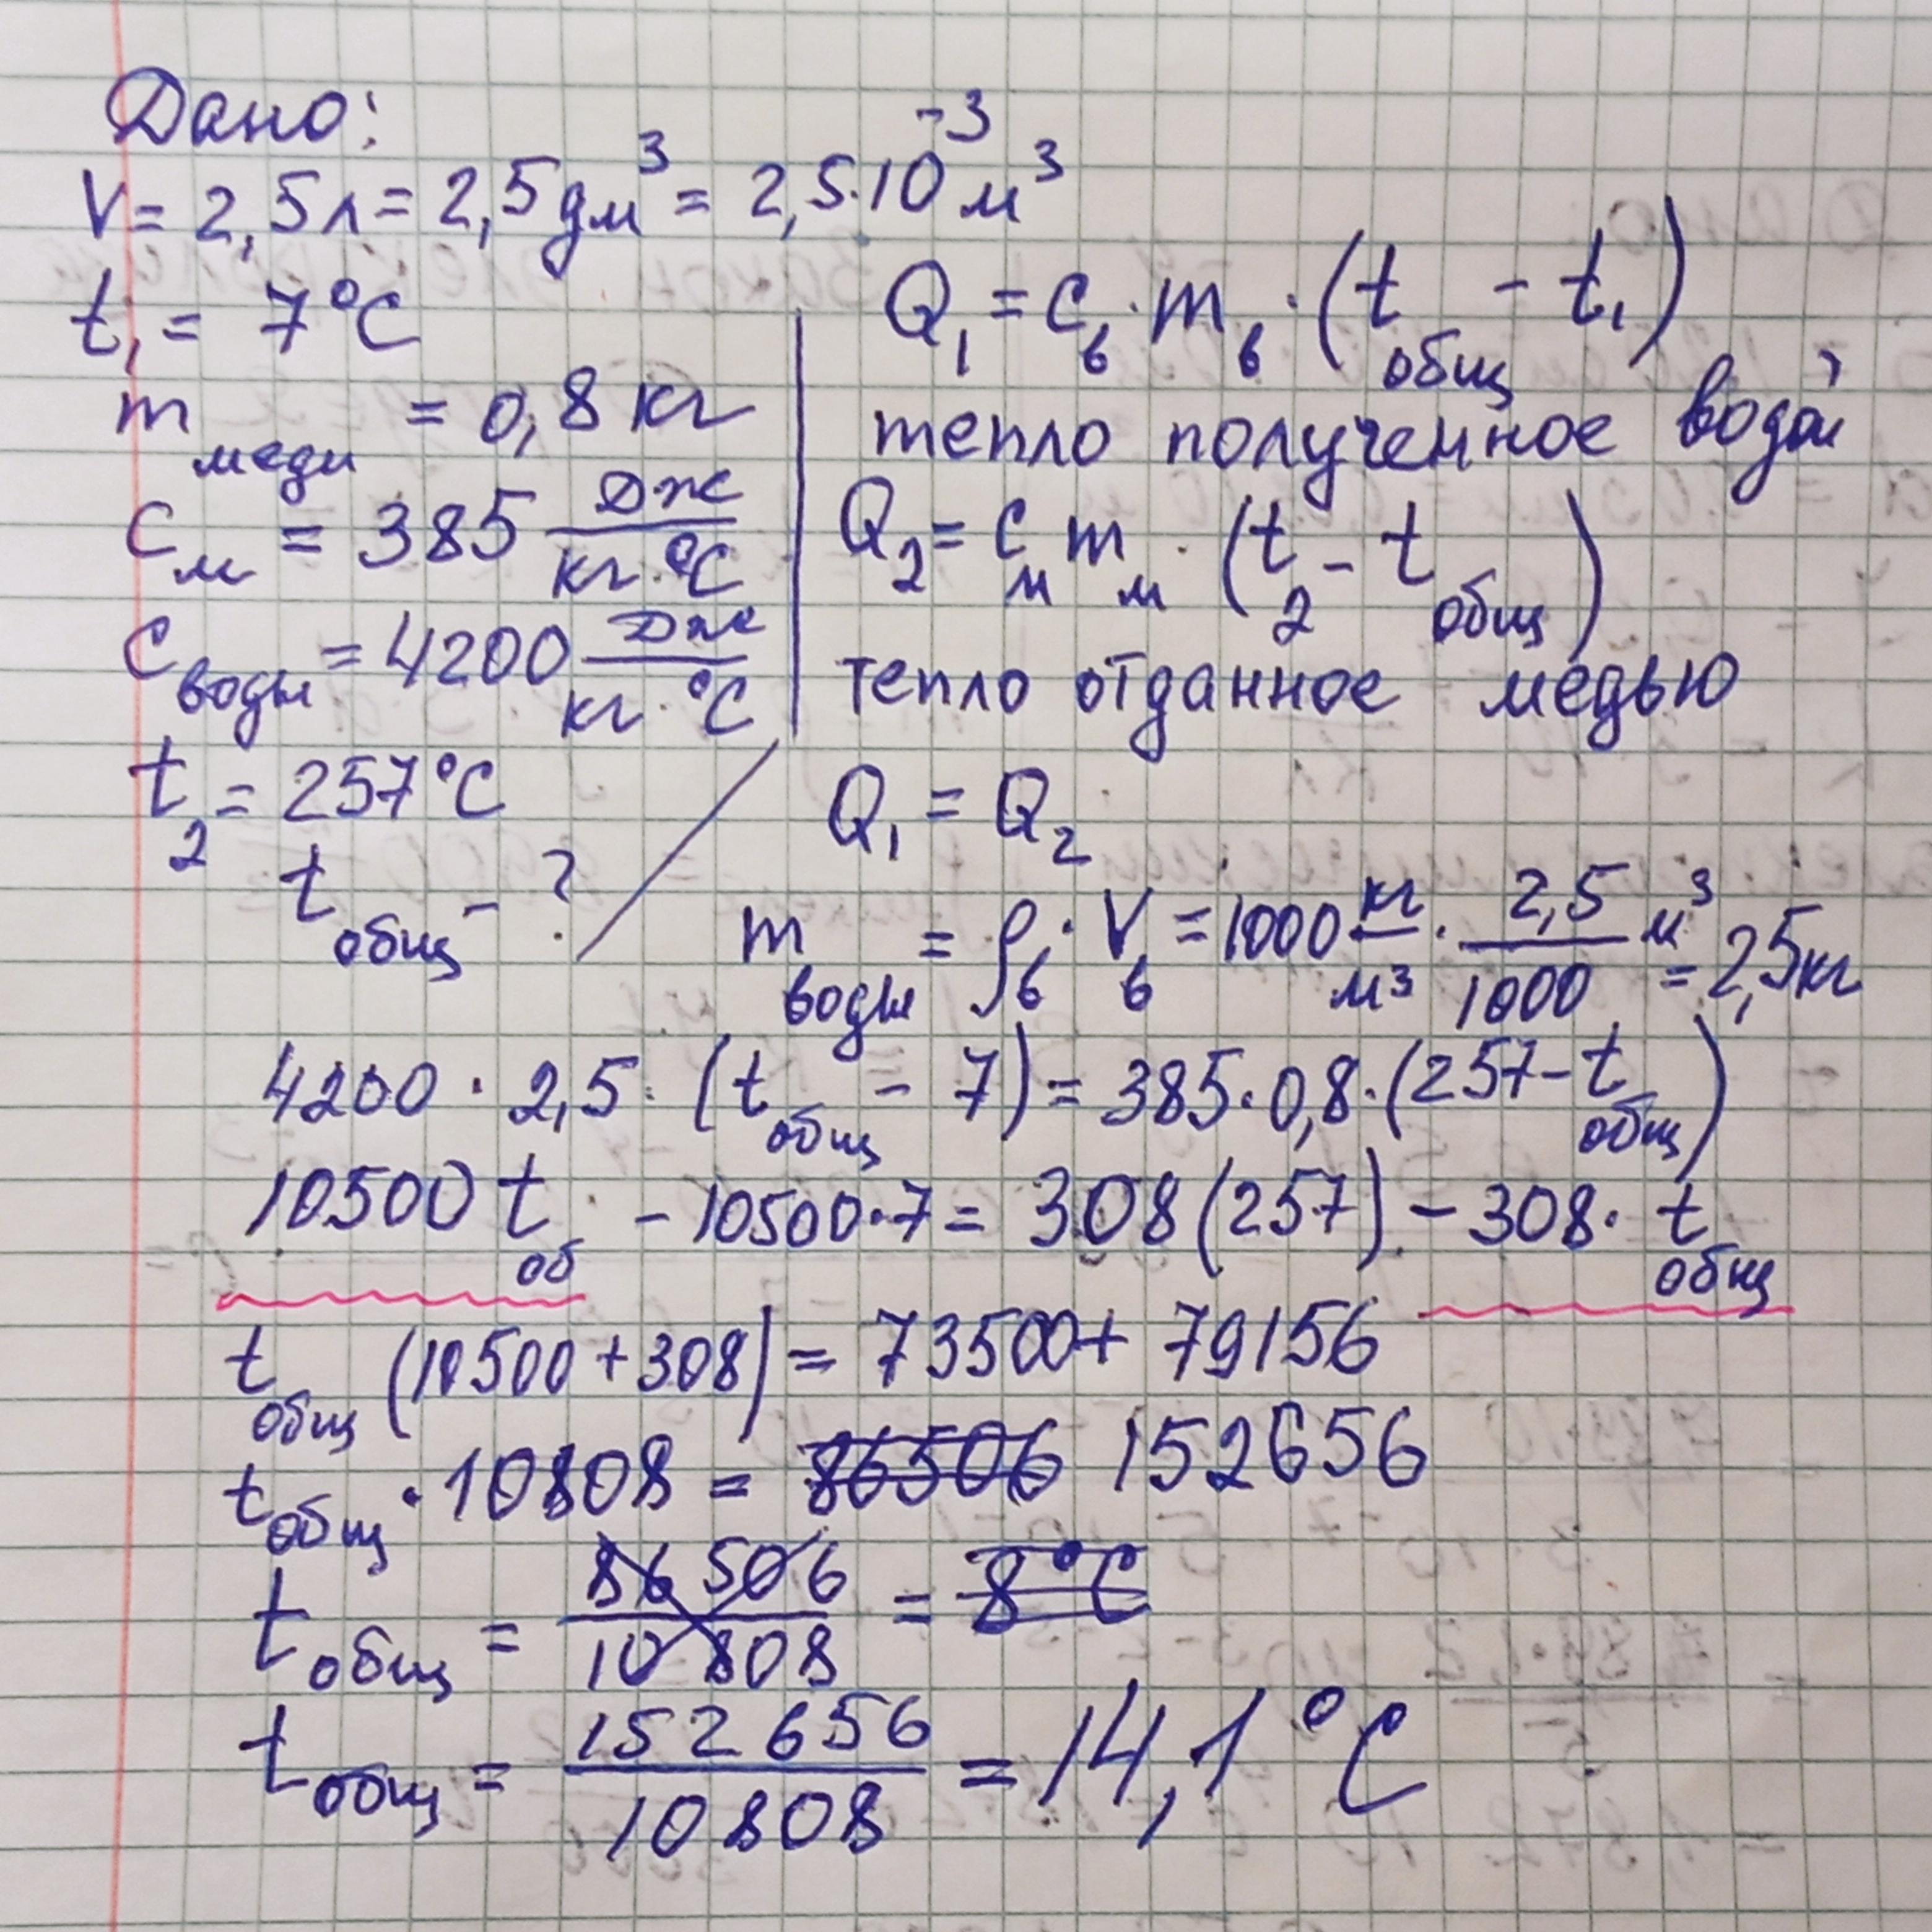 Дано:
V = 2,5л = 2,5дм³ = 2,5·10⁻³ м³
t₁ = 7°C
m меди = 0,8 кг
c м = 385 Дж/кг·°C
c воды = 4200 Дж/кг·°C
t₂ = 257°C
t общ - ?
Q₁ = c в · m в · (t общ - t₁)
тепло полученное водой
Q₂ = c м m м · (t₂ - t общ)
тепло отданное медью
Q₁ = Q₂
m воды = ρ в · V в = 1000 кг/м³ · 2,5/1000 м³ = 2,5кг
4200 · 2,5 · (t общ - 7) = 385·0,8·(257 - t общ)
10500 t об - 10500·7 = 308(257) - 308· t общ
t общ (10500 + 308) = 73500 + 79156
t общ · 10808 = 86506 152656
t общ = 86506/10808 = 8°C
t общ = 152656/10808 = 14,1°C